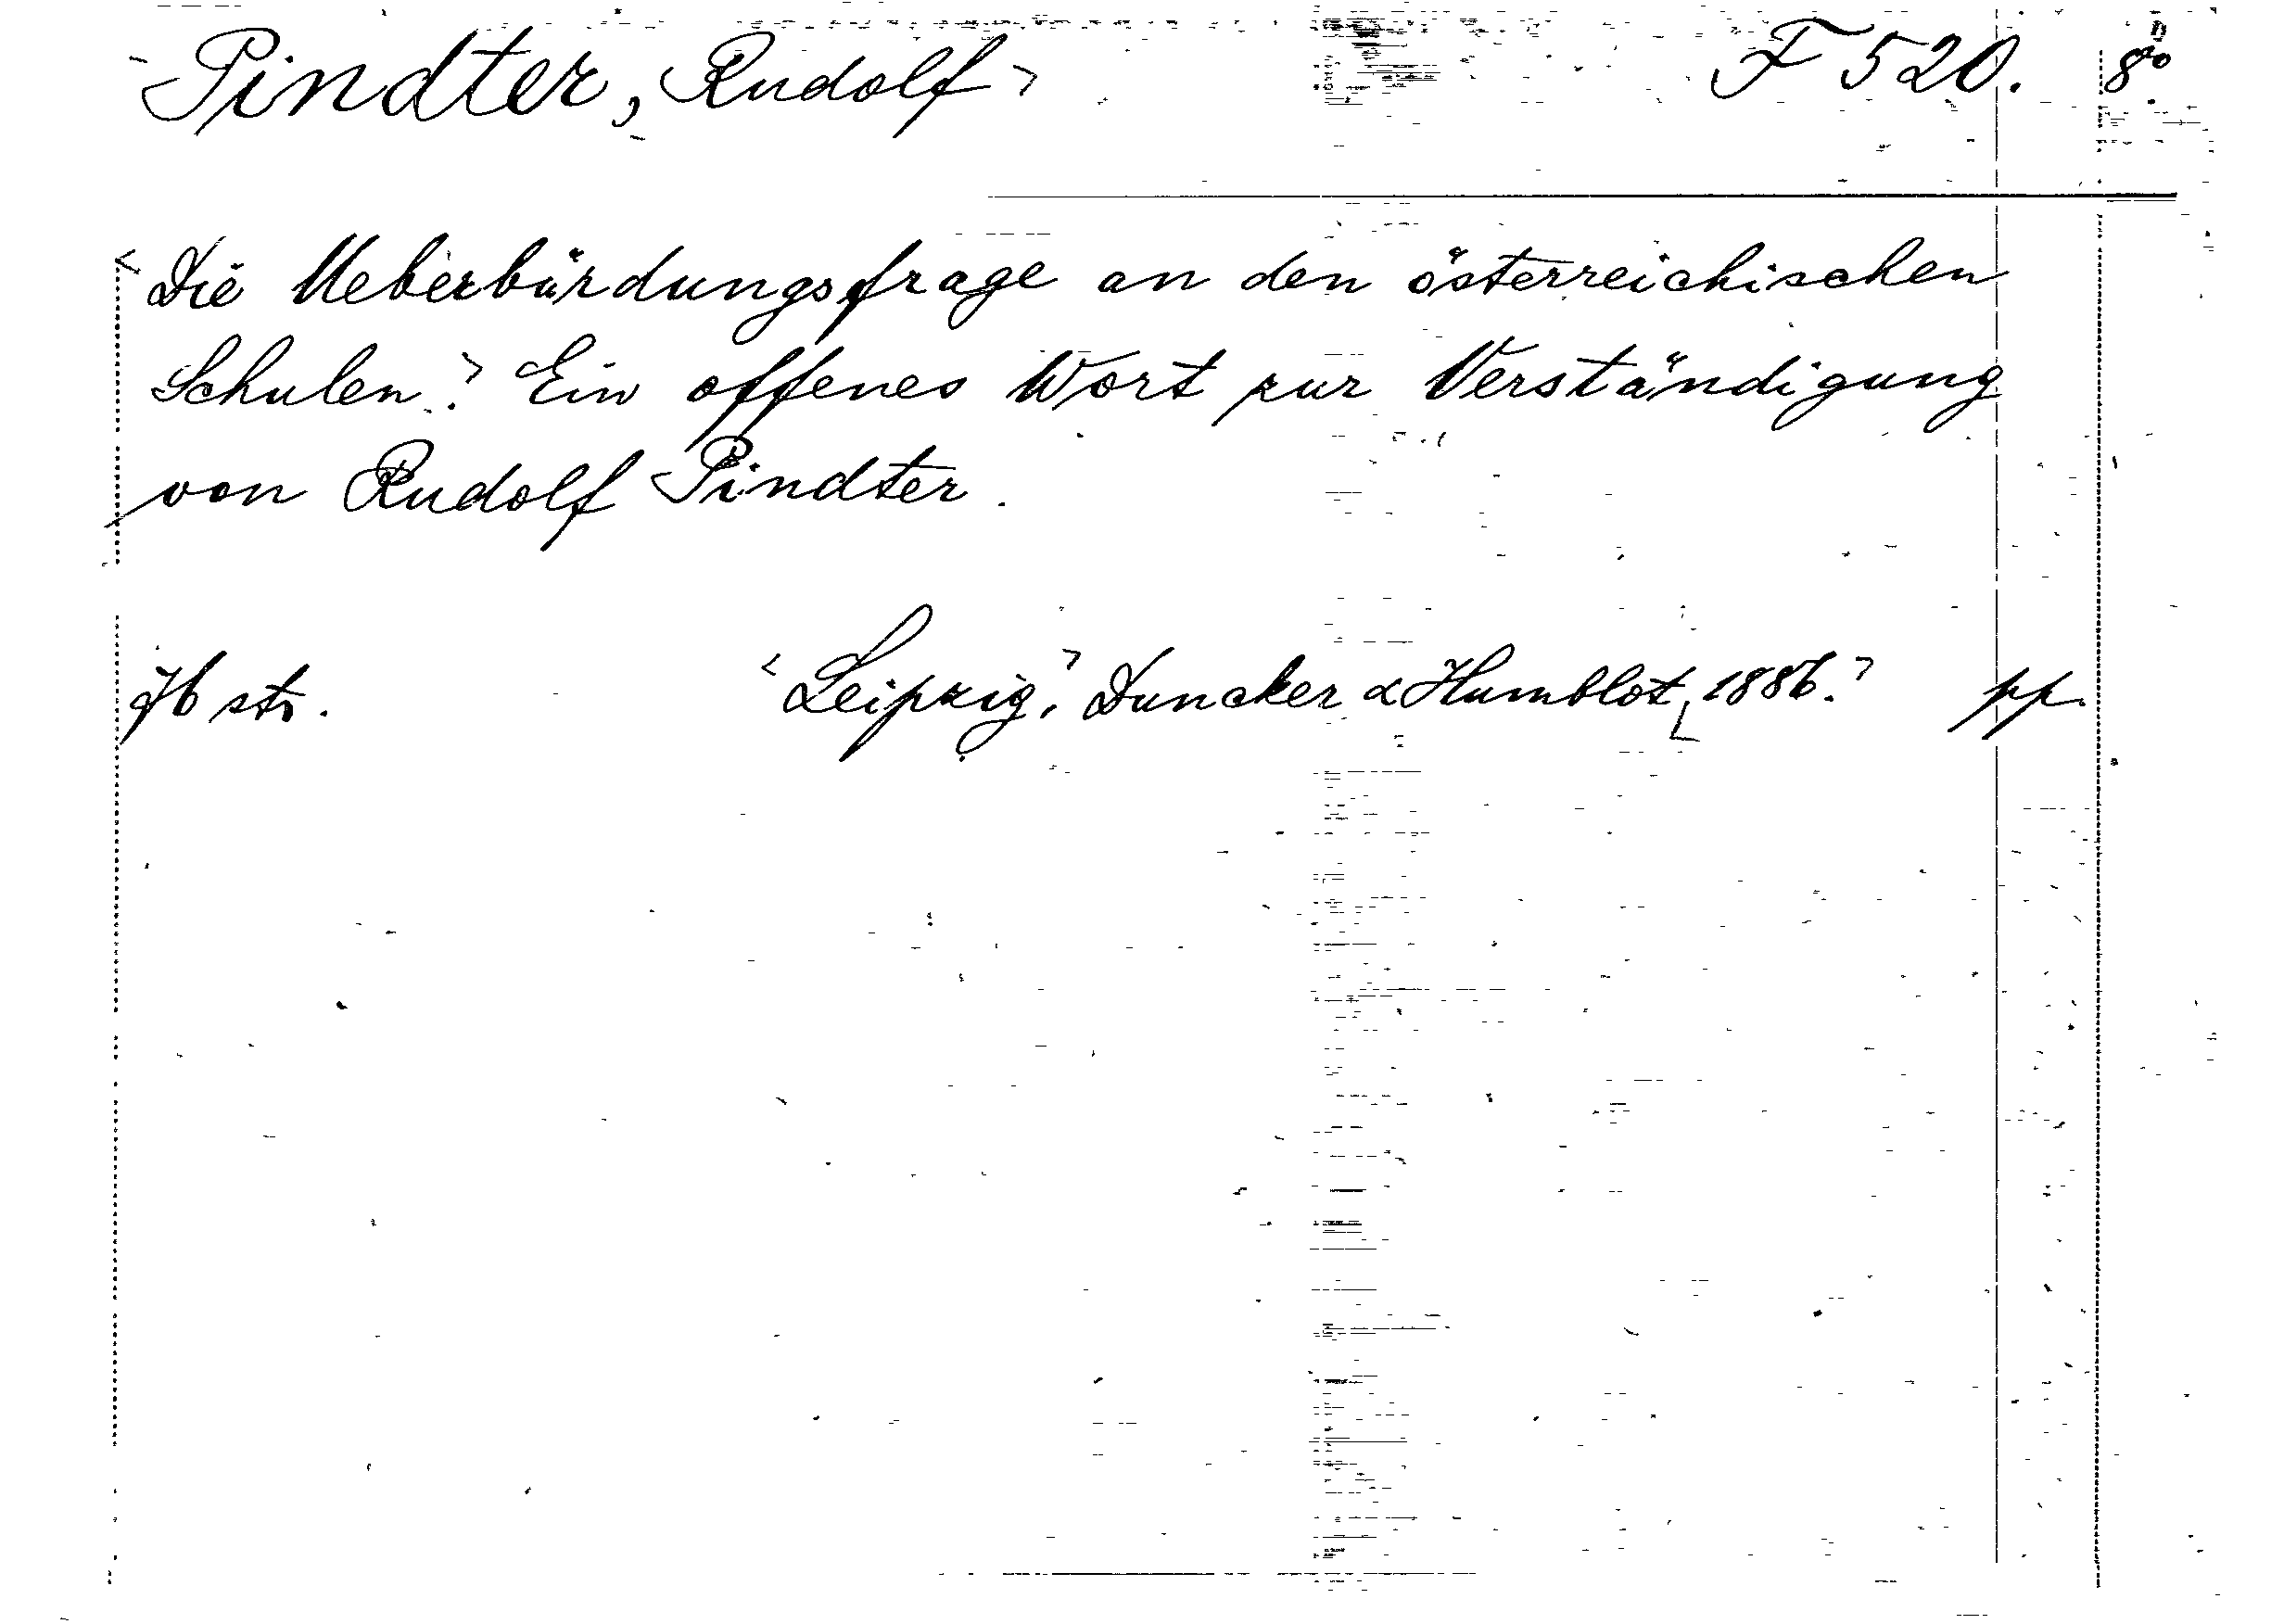 Pindter, Rudolf F 520. 8°
Die Ueberbürdungsfrage an den österreichischen
Schulen. Ein offenes Wort zur Verständigung
von Rudolf Pindter.
str. Leipzig, Duncker & Humblot, 1886. pp.